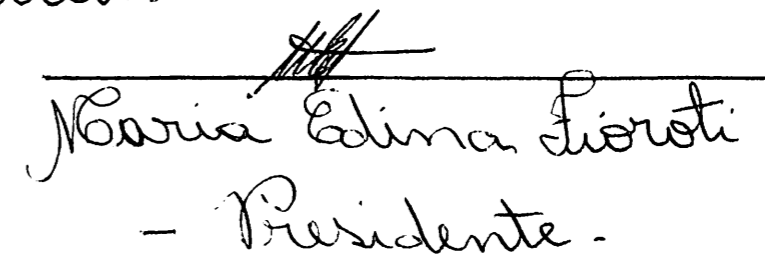 Maria Edina Fioroti
- Presidente -